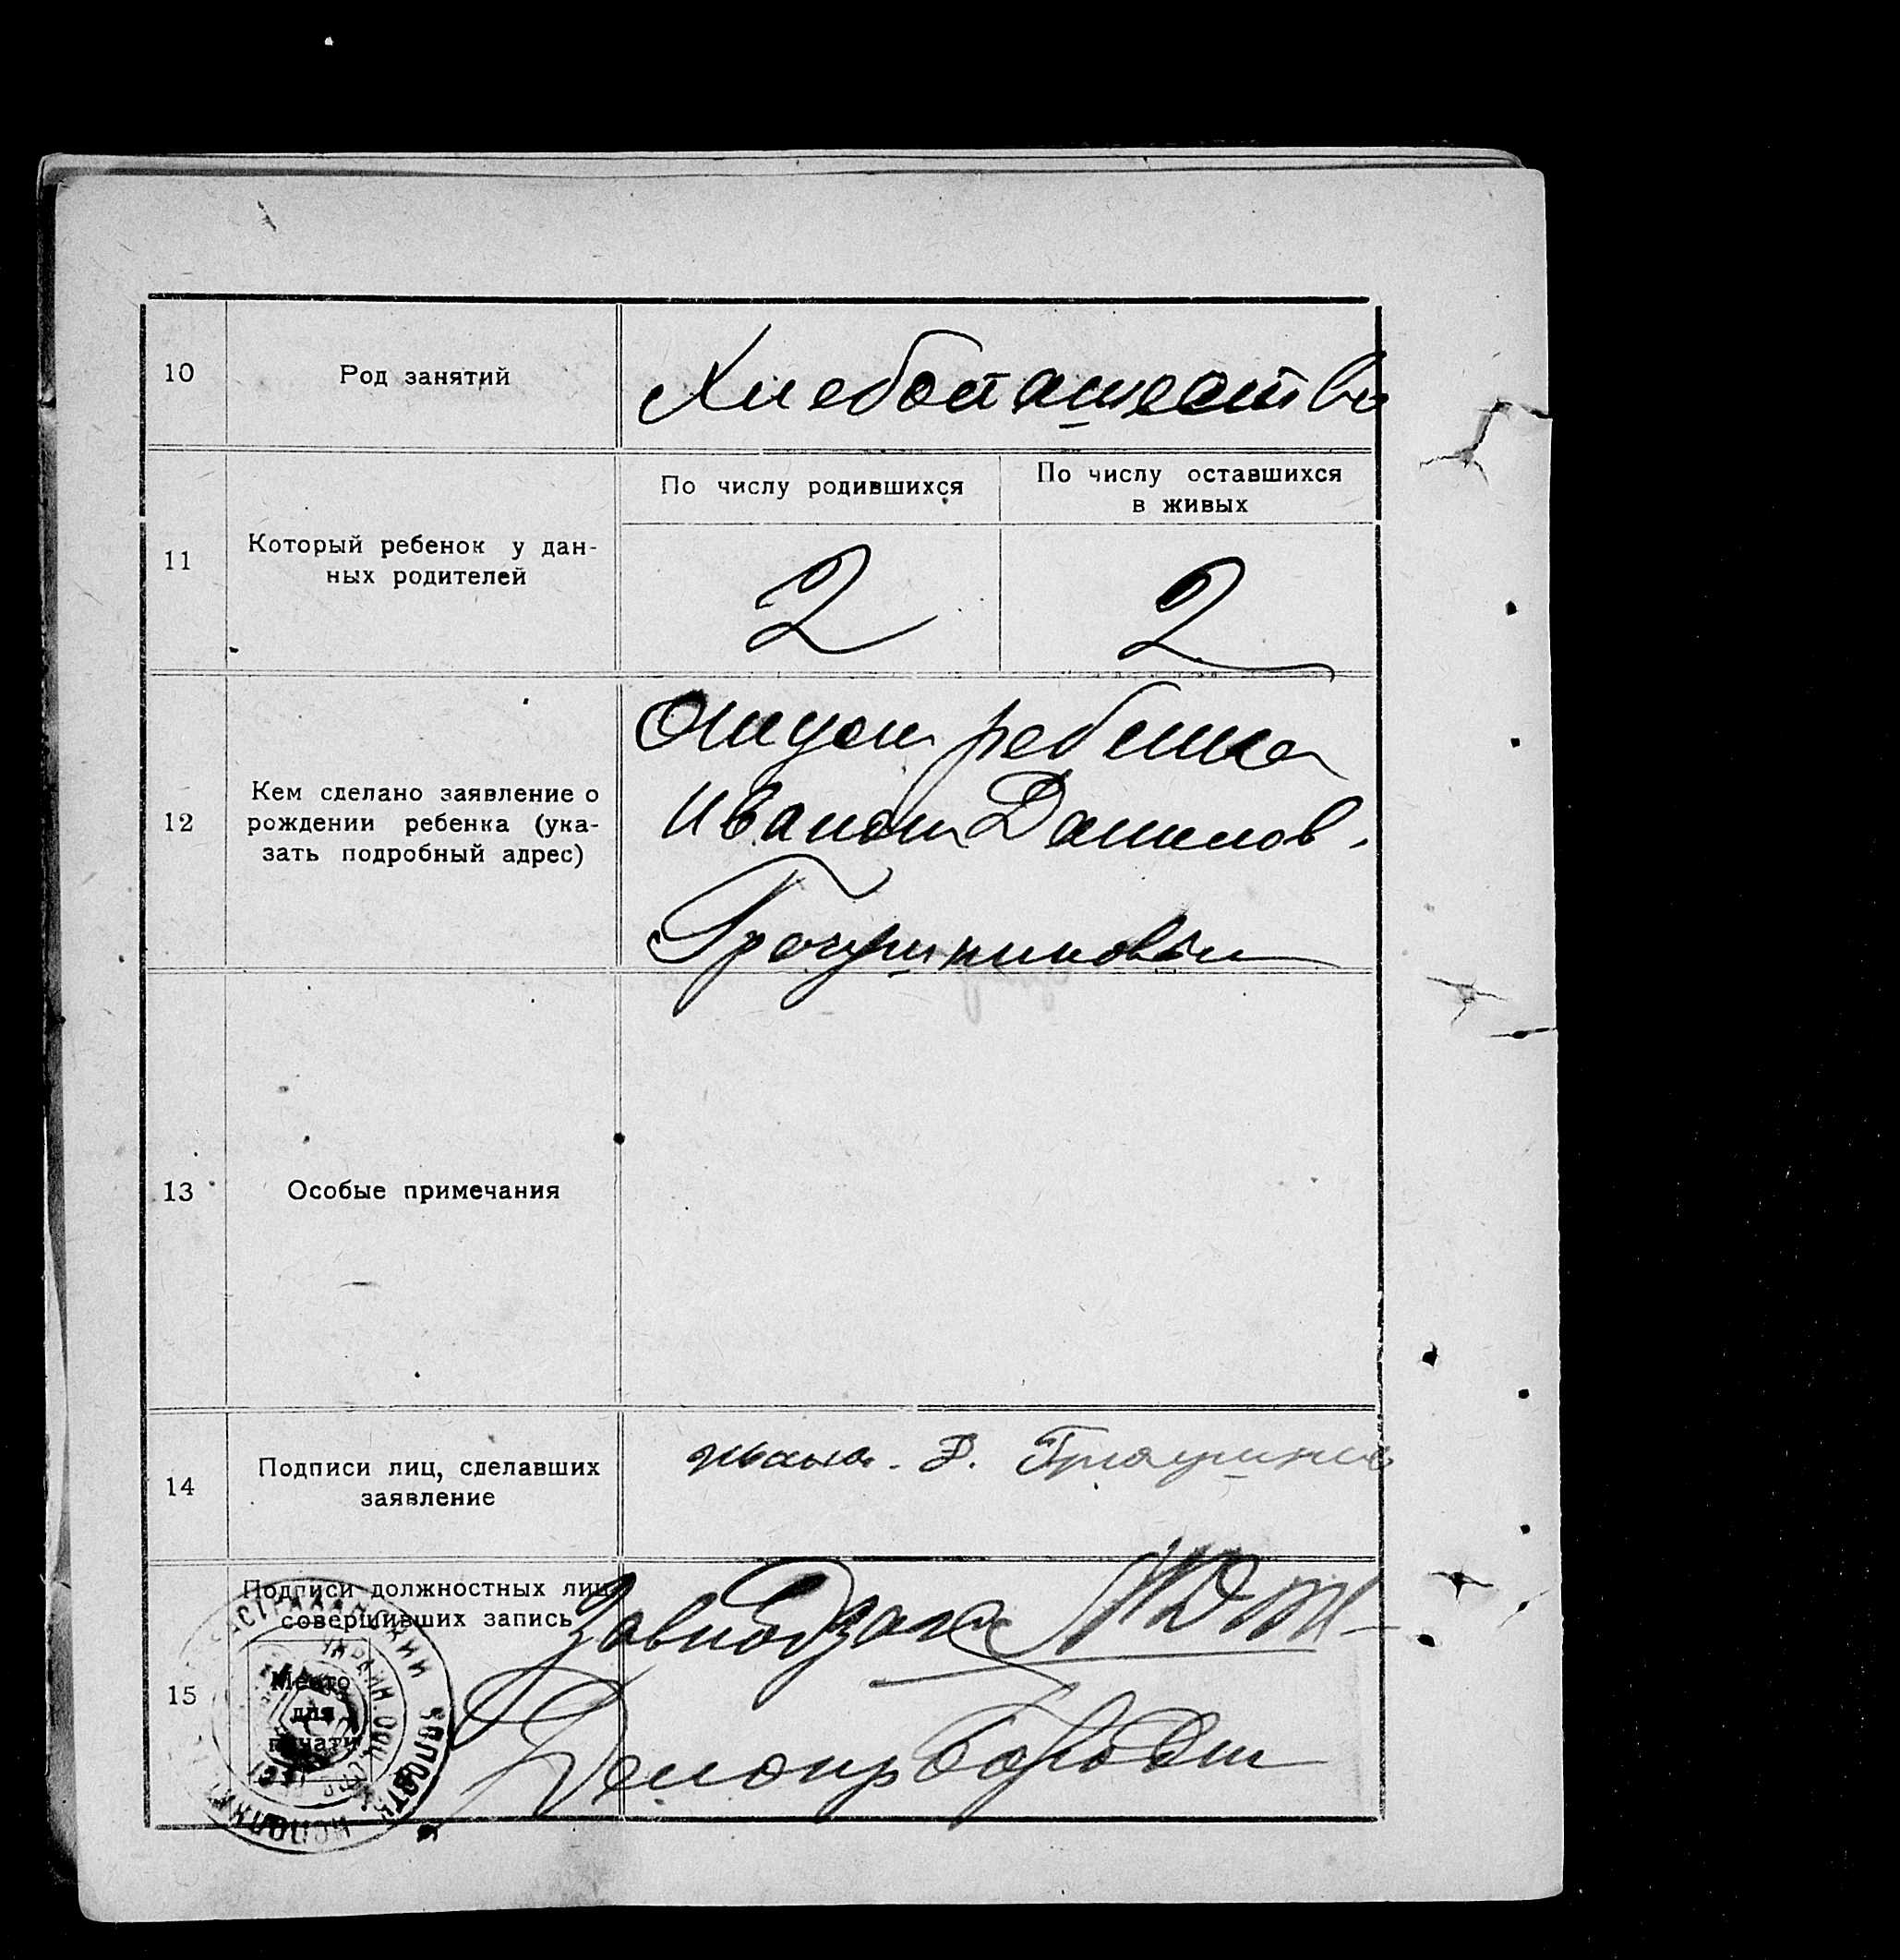 10
Род занятий
Хлебопашество
11
Который ребенок у дан-
ных родителей
По числу родившихся
По числу оставшихся
в живых
2
2
12
Кем сделано заявление о
рождении ребенка (ука-
зать подробный адрес)
Отцом ребенка
Иваном Данилов.
13
Особые примечания
14
Подписи лиц, сделавших
заявление
15
Подписи должностных лиц,
совершивших запись
Завподзагс
Делопр
Место
для
печати